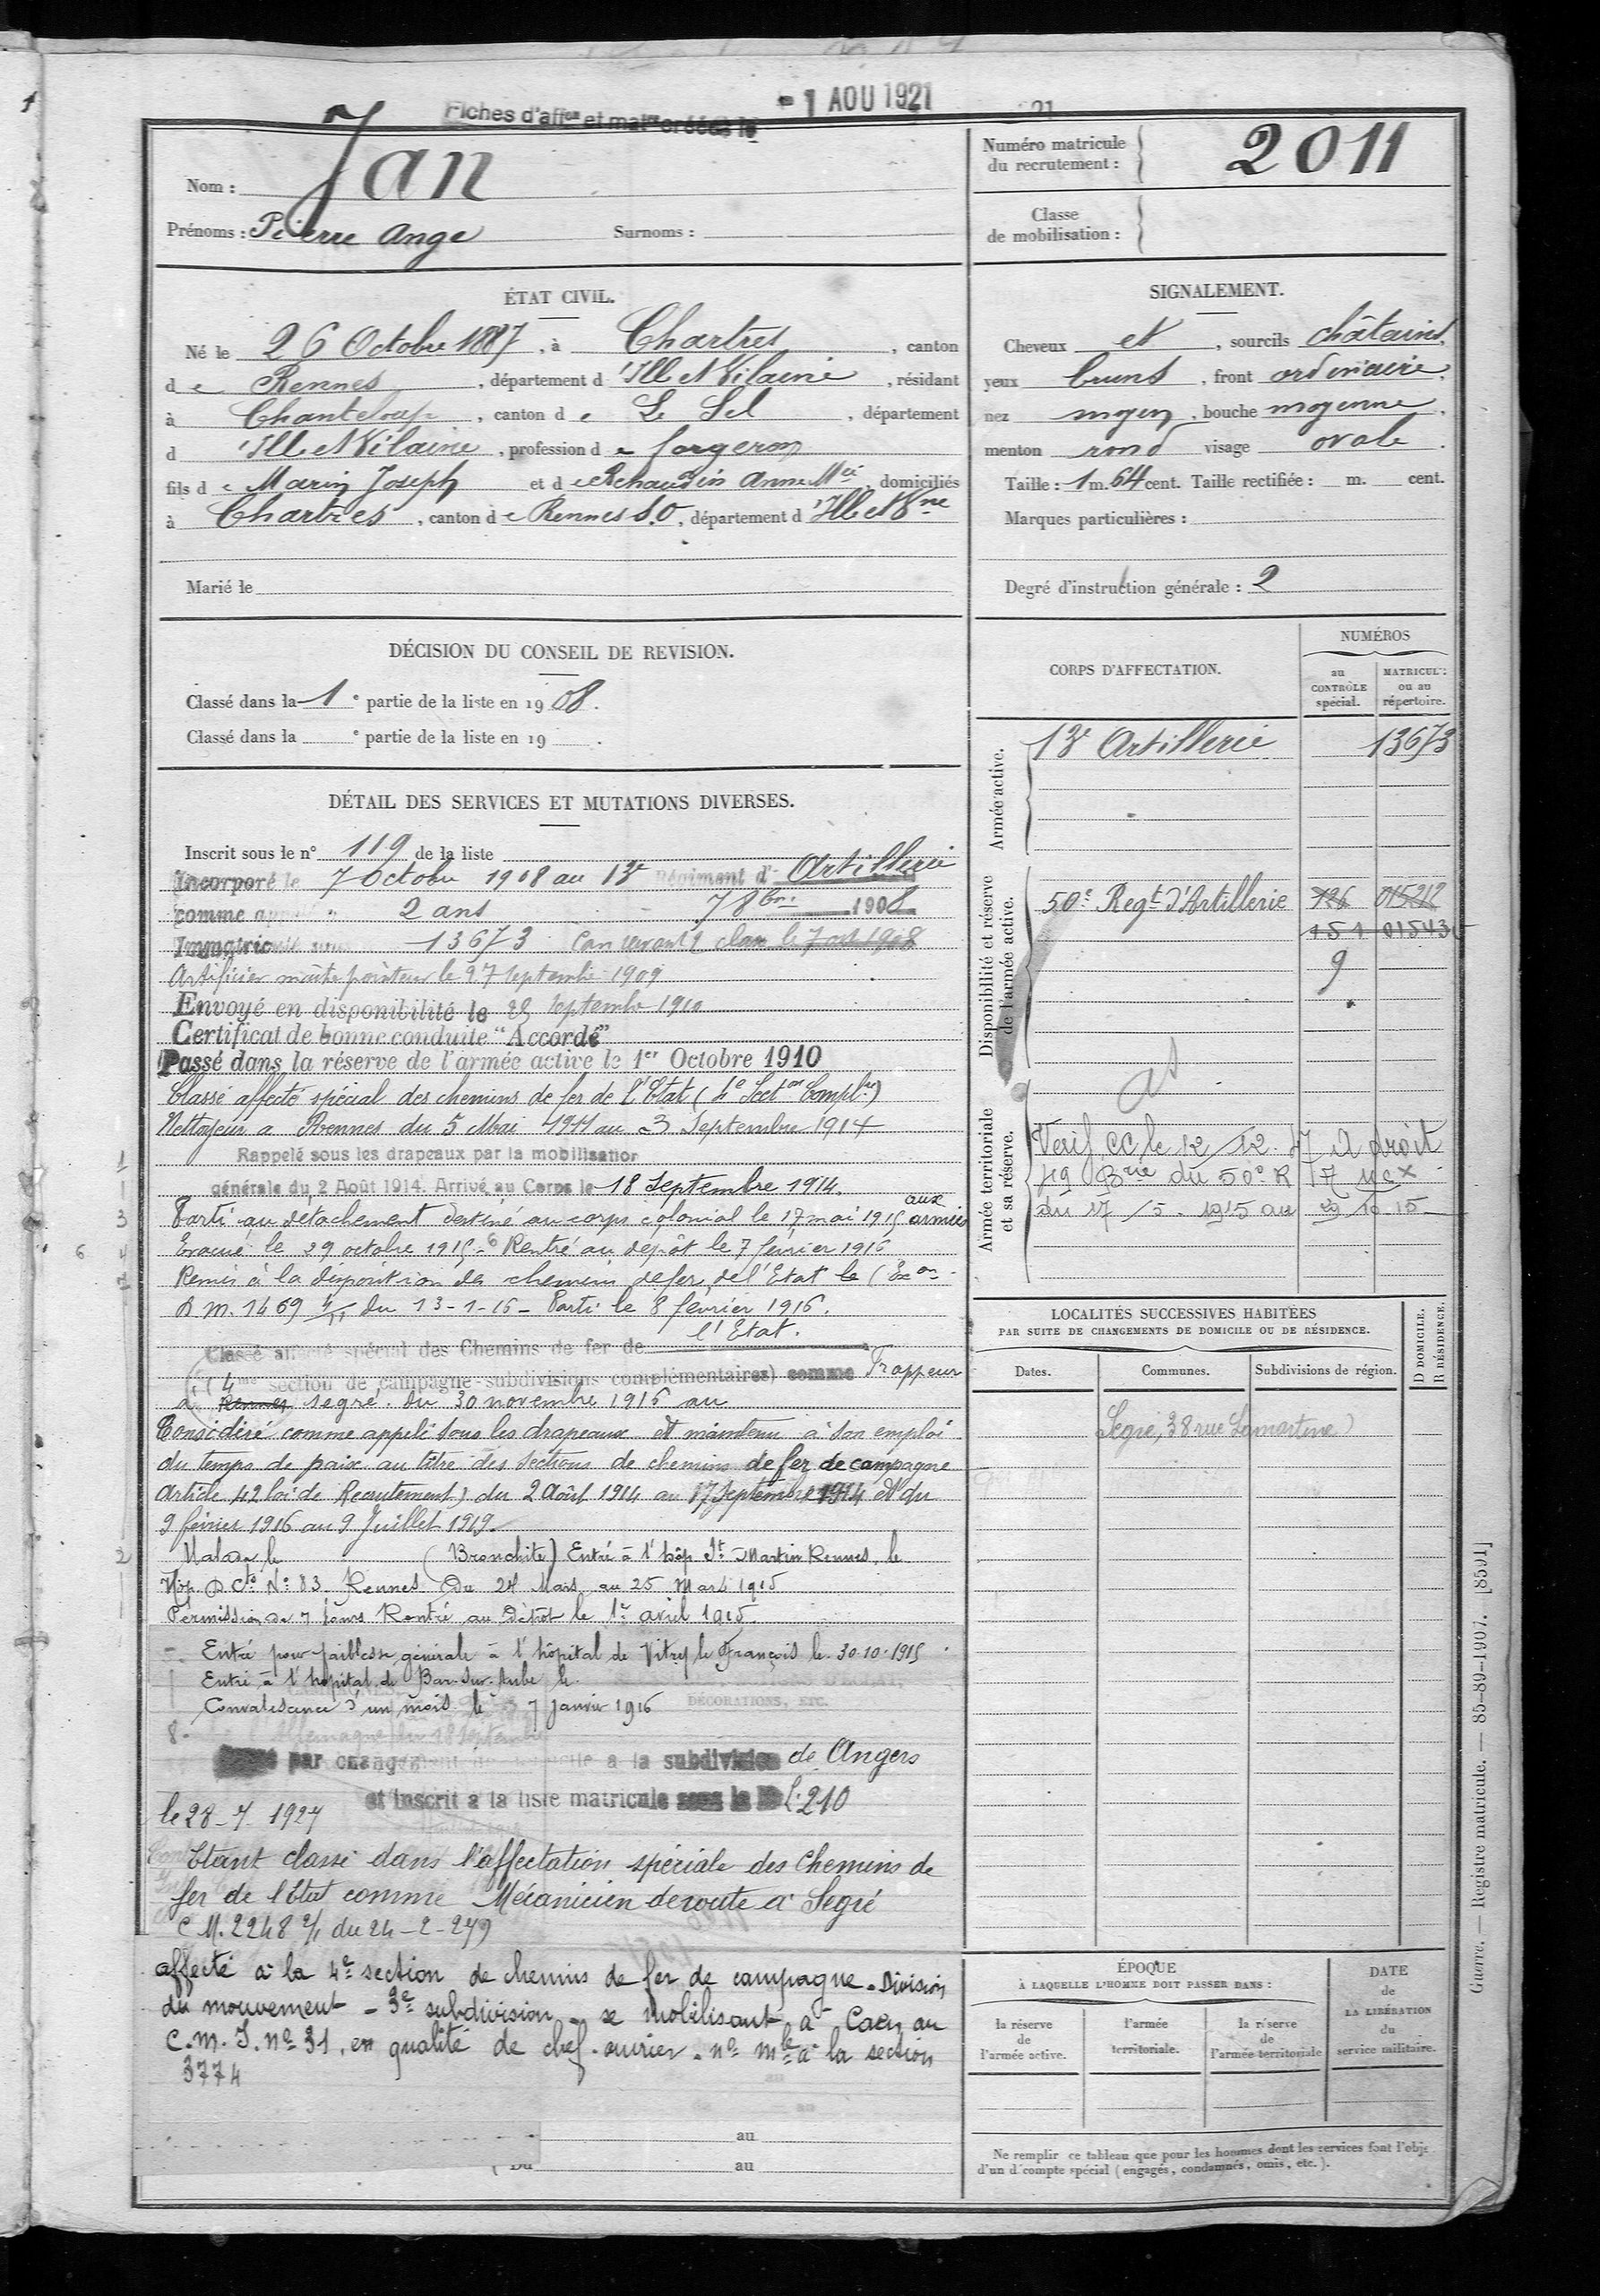 Fiches d'affon et malre créées le - 1 AOU 1921
Nom : Jan
Prénoms : Pierre Ange Surnoms :
Numéro matricule du recrutement : 2011
Classe de mobilisation :
ÉTAT CIVIL.
Né le 26 Octobre 1887, à Chartres, canton
de Rennes, département d'Ille et Vilaine, résidant
à Chanteloup, canton de Le Sel, département
d'Ille et Vilaine, profession de forgeron
fils de Marin Joseph et de Rehaudin Anne Mie, domiciliés
à Chartres, canton de Rennes S.O, département d'Ille et Vne
Marié le
SIGNALEMENT.
Cheveux et, sourcils châtains,
yeux bruns, front ordinaire,
nez moyen, bouche moyenne,
menton rond visage ovale.
Taille : 1 m. 64 cent. Taille rectifiée : m. cent.
Marques particulières :
Degré d'instruction générale : 2
DÉCISION DU CONSEIL DE REVISION.
Classé dans la 1e partie de la liste en 1908.
Classé dans la e partie de la liste en 19 .
DÉTAIL DES SERVICES ET MUTATIONS DIVERSES.
Inscrit sous le n° 119 de la liste
Incorporé le 7 Octobre 1908 au 13e Régiment d'Artillerie
comme 2 ans 7 8bre 1908
13673
Artificier maître pointeur le 27 Septembre 1909
Envoyé en disponibilité le 25 Septembre 1910
Certificat de bonne conduite "Accordé"
Passé dans la réserve de l'armée active le 1er Octobre 1910
Classé affecté spécial des chemins de fer de l'Etat (4e Secton Complre)
Nettoyeur à Rennes du 5 Mai 1911 au 3 Septembre 1914
1 Rappelé sous les drapeaux par la mobilisation
générale du 2 Août 1914. Arrivé au Corps le 18 Septembre 1914.
3 Parti au détachement destiné au corps colonial le 17 mai 1915 aux armées
6 4 Evacué le 29 octobre 1915 - 6 Rentré au dépôt le 7 février 1916
7 Remis à la disposition des chemins de fer de l'Etat le
D.M. 1469 du 13-1-16 - Parti le 8 février 1916.
Classé affecté spécial des Chemins de fer de l'Etat.
(4me section de campagne-subdivisions complémentaires) comme Frappeur
à Rennes segré. du 30 novembre 1916 au
Considéré comme appelé sous les drapeaux et maintenu à son emploi
du temps de paix au titre des sections de chemins de fer de campagne
article 42 loi de Recrutement) du 2 Août 1914 au 17 Septembre 1914 et du
9 février 1916 au 9 Juillet 1919.
2 Malade le (Bronchite) Entré à l'hôp St Martin Rennes, le
Hôp. N° 83. Rennes Du 24 Mars au 25 Mars 1915
Permission de 7 jours Rentré au Dépôt le 1er avril 1915
Entré pour faiblesse générale à l'hôpital de Vitry le François le 30.10.1915
Entré à l'hôpital de Bar-sur-Aube le
Convalescence d'un mois le 7 Janvier 1916 DÉCORATIONS, ETC.
8.
par changement de à la subdivision de Angers
et inscrit à la liste matricule sous le N° L.210
le 28-7-1927
Etant classé dans l'affectation spéciale des Chemins de
fer de l'Etat comme Mécanicien de route à Segré
C M. 2248 2/1 du 24-2-279
affecté à la 4e section de chemins de fer de campagne - Division
du mouvement - 3e subdivision - se mobilisant à Caen au
C.M.I. no 31, en qualité de chef-ouvrier. no mle à la section
3774
au
Du au
CORPS D'AFFECTATION.
NUMÉROS
au CONTRÔLE spécial.
MATRICULE ou au répertoire.
Armée active.
13e Artillerie 13673
Disponibilité et réserve de l'armée active.
50e Regt d'Artillerie 726 015212
151 01543
9
Armée territoriale et sa réserve.
Verif CC le 12/12.47 A droit
49 Brie du 50e R
du 17/5.1915 au 29 10 15
LOCALITÉS SUCCESSIVES HABITÉES
PAR SUITE DE CHANGEMENTS DE DOMICILE OU DE RÉSIDENCE.
Dates. Communes. Subdivisions de région. D DOMICILE. R RÉSIDENCE.
Segré, 38 rue Lamartine
ÉPOQUE
À LAQUELLE L'HOMME DOIT PASSER DANS :
la réserve de l'armée active.
l'armée territoriale.
la réserve de l'armée territoriale
DATE de LA LIBÉRATION du service militaire.
Ne remplir ce tableau que pour les hommes dont les services font l'obje
d'un décompte spécial (engagés, condamnés, omis, etc.).
Guerre. — Registre matricule. — 85-89-1907. [8591]